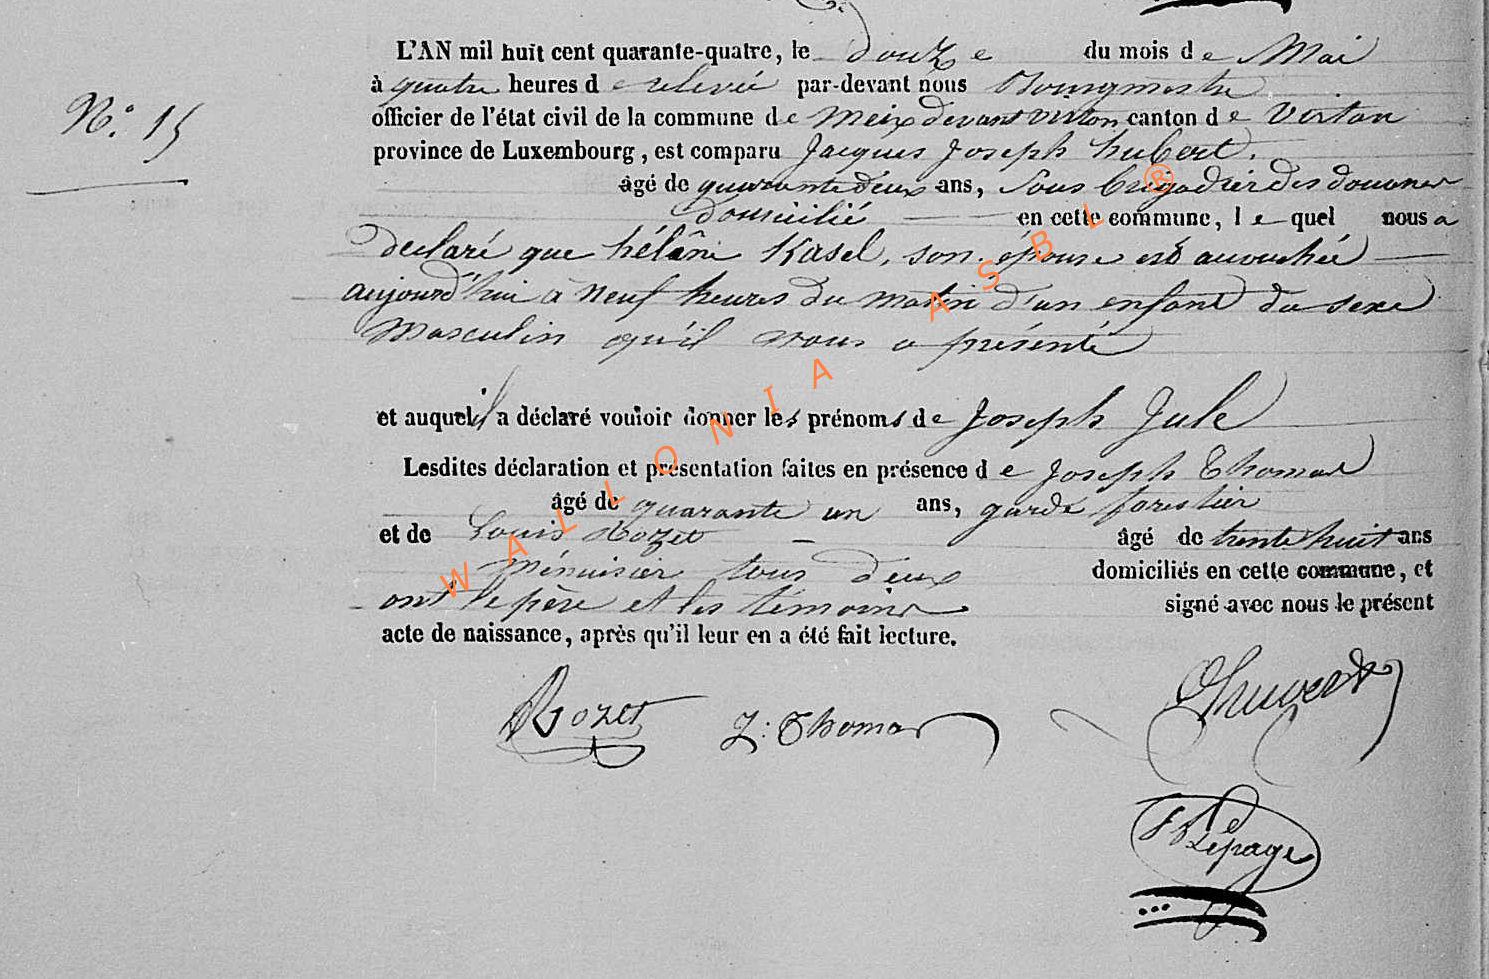 N.° 15
L'AN mil huit cent quarante-quatre, le douze du mois de Mai
à quatre heures de relevée par-devant nous Bourgmestre
officier de l'état civil de la commune de Meix devant virton canton de Virton
province de Luxembourg, est comparu Jacques Joseph hubert.
âgé de quarante deux ans, Sous brigadier des douanes
domicilié en cette commune, lequel nous a
declaré que hélène Kasel, son épouse est accouchée
aujourd'hui à neuf heures du matin d'un enfant du sexe
Masculin qu'il nous a présenté
et auquel il a déclaré vouloir donner les prénoms de Joseph Jule
Lesdites déclaration et présentation faites en présence de Joseph Thomas
âgé de quarante un ans, garde forestier
et de Louis Rozet âgé de trente huit ans
ménuisier tous deux domiciliés en cette commune, et
ont le père et les témoins signé avec nous le présent
acte de naissance, après qu'il leur en a été fait lecture.
Rozet J: Thomas Hubert
Lepage
WALLONIA ASBL ®